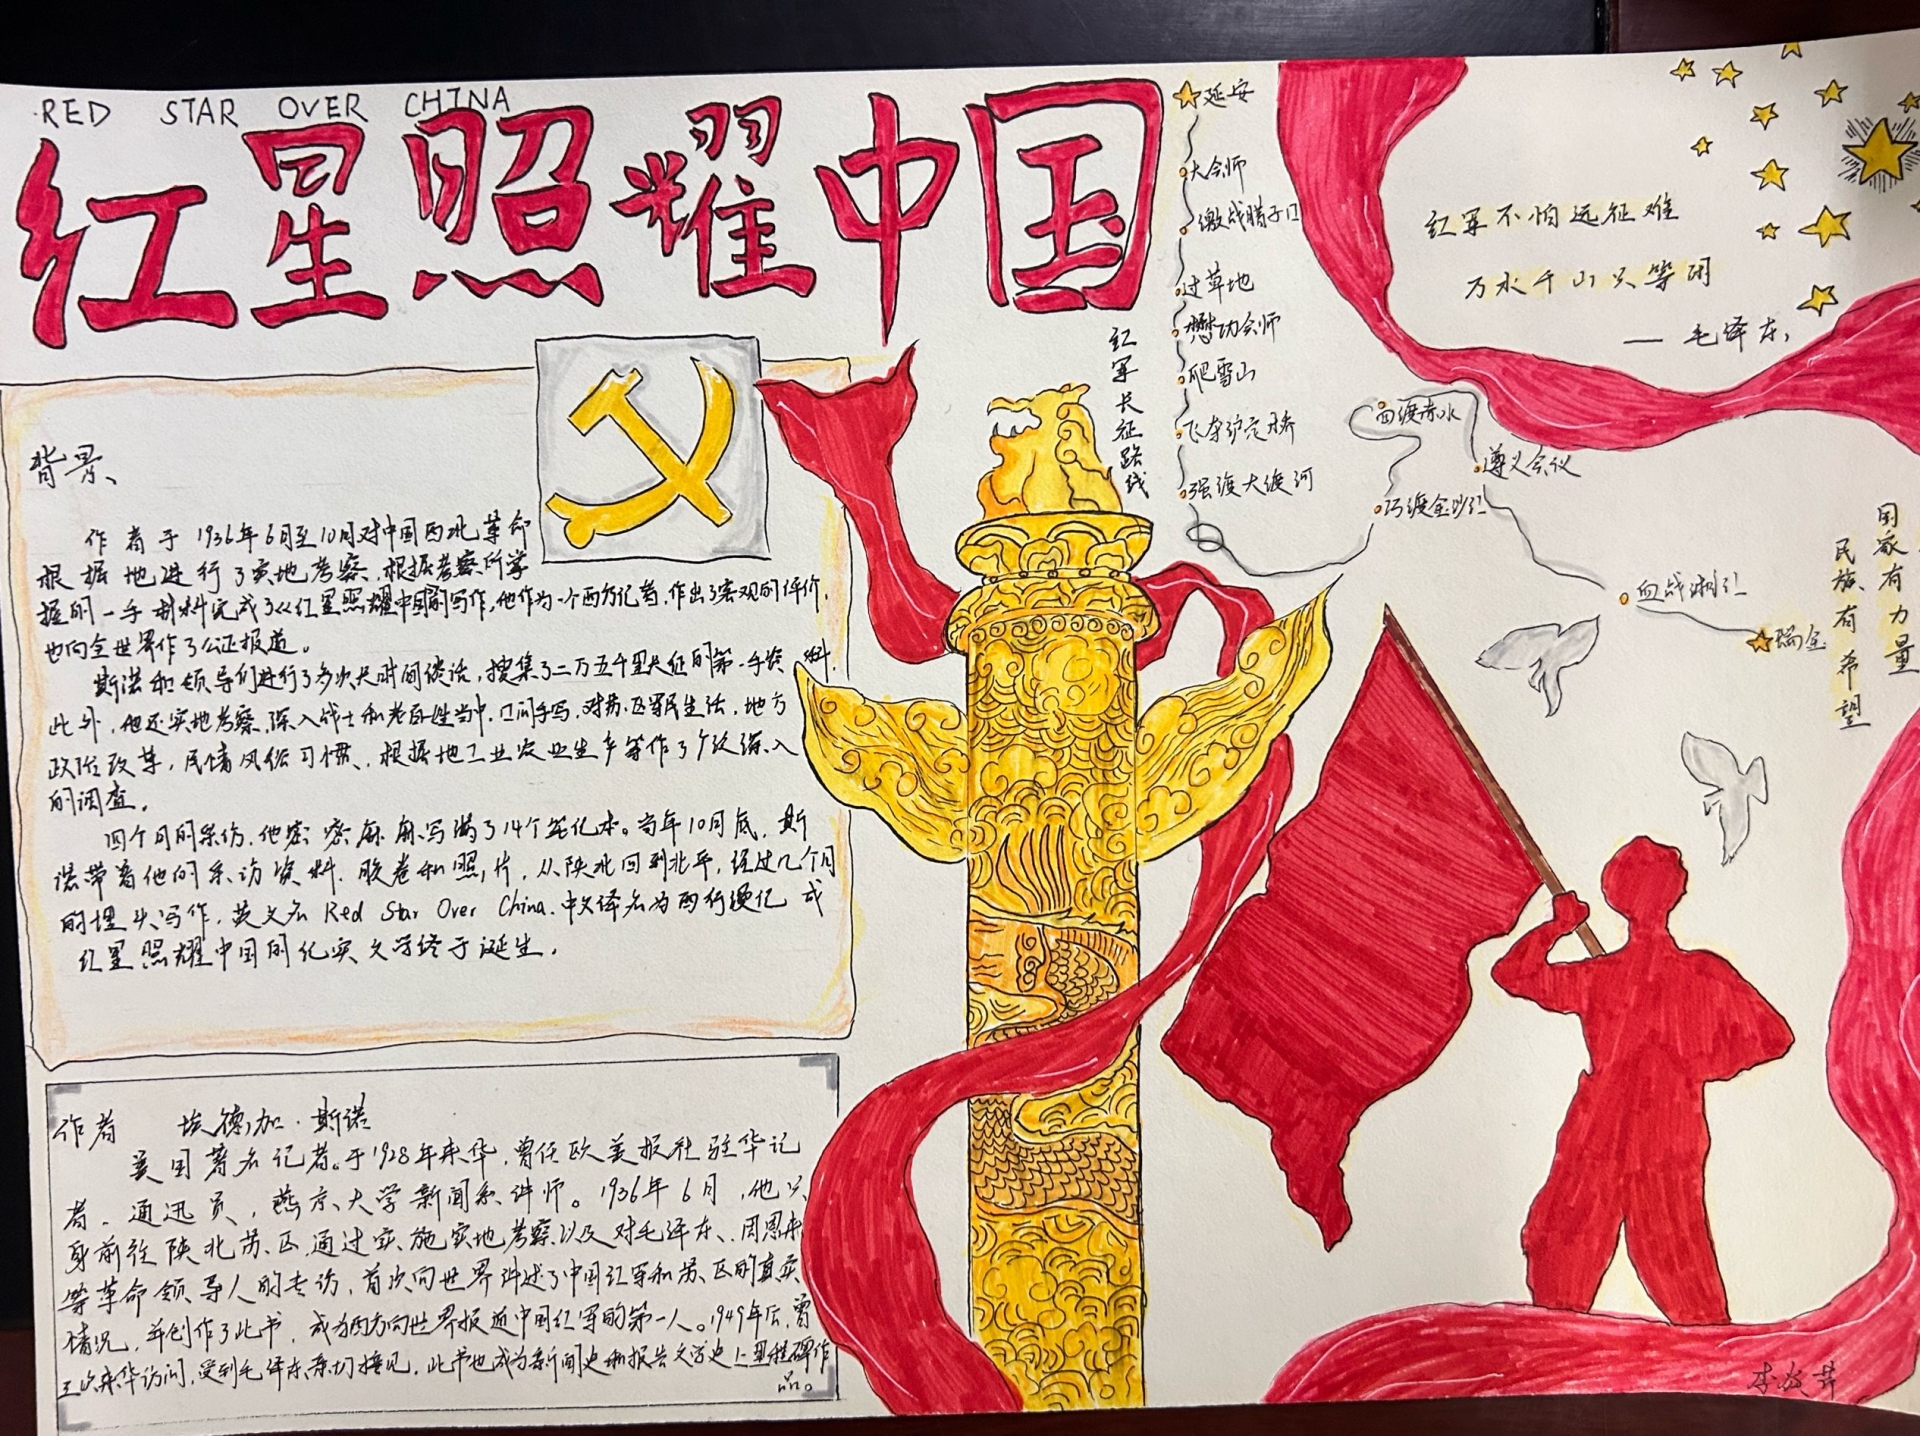 RED STAR OVER CHINA
红星照耀中国
背景、
作者于1936年6月至10月对中国西北革命
根据地进行了实地考察,根据考察所掌
握的一手材料完成了《红星照耀中国》的写作,他作为一个西方记者,作出了客观的评价,
也向全世界作了公证报道。
斯诺和领导们进行了多次长时间谈话,搜集了二万五千里长征的第一手资料.
此外,他还实地考察,深入战士和老百姓当中,口问手写,对苏区军民生活,地方
政治改革,民情风俗习惯、根据地工业农业生产等作了广泛深入
的调查。
四个月的采访,他密密麻麻写满了14个笔记本。当年10月底,斯
诺带着他的采访资料、胶卷和照片,从陕北回到北平,经过几个月
的埋头写作,英文名 Red Star Over China.中文译名为西行漫记 或
红星照耀中国的纪实文学终于诞生.
作者 埃德加·斯诺
美国著名记者。于1928年来华,曾任欧美报社驻华记
者、通迅员,燕京大学新闻系讲师。1936年6月,他只
身前往陕北苏区,通过实施实地考察以及对毛泽东、周恩来
等革命领导人的专访,首次向世界讲述了中国红军和苏区的真实
情况,并创作了此书,成为西方向世界报道中国红军的第一人。1949年后,曾
三次来华访问,受到毛泽东亲切接见,此书也成为新闻史和报告文学史上里程碑作
品。
红军长征路线
延安
大会师
激战腊子口
过草地
懋功会师
爬雪山
飞夺泸定桥
强渡大渡河
巧渡金沙江
四渡赤水
遵义会议
血战湘江
瑞金
红军不怕远征难
万水千山只等闲
— 毛泽东,
国家有力量
民族有希望